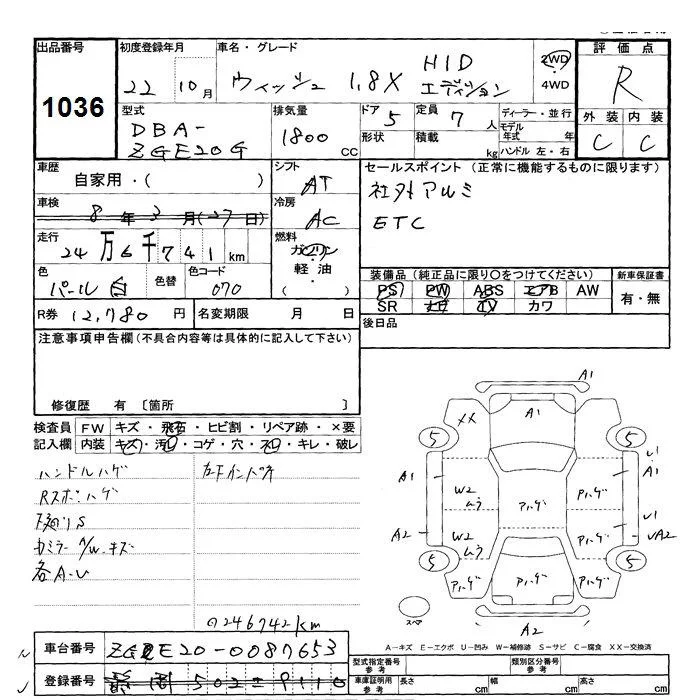 出品番号 初度登録年月 車名・グレード 評価点
1036 22 10月 ウィッシュ 1.8X HID エディション 2WD 4WD R
型式 排気量 ドア 5 定員 7 人 ディーラー・並行 外装 内装
DBA-ZGE20G 1800 CC 形状 積載 kg モデル年式 年 C C
ハンドル 左・右
車歴 シフト セールスポイント (正常に機能するものに限ります)
自家用・( ) AT 社外アルミ
車検 冷房 ETC
8年3月(27日) AC
走行 燃料
24万6千741km ガソリン・軽油・( )
色 色替 色コード 装備品(純正品に限り〇をつけてください) 新車保証書
パール白 070 PS PW ABS エアB AW 有・無
SR ナビ TV カワ
R券 12,780円 名変期限 月 日 後日品
注意事項申告欄(不具合内容等は具体的に記入して下さい)
修復歴 有 〔箇所 〕
検査員 FW キズ・飛石・ヒビ割・リペア跡・×要
記入欄 内装 キズ・汚・コゲ・穴・スロ・キレ・破レ
ハンドルハゲ
各A-U
⊙246742km
A1
XX A1
5 5
A1 U1 A1
W2ムラ Aハゲ Aハゲ
A2 W2ムラ Aハゲ Aハゲ U1 UA2
5 5
Aハゲ Aハゲ Aハゲ
スペア A2
A-キズ E-エクボ U-凹み W-補修跡 S-サビ C-腐食 XX-交換済
車台番号 ZGE20-0087653
登録番号 静岡 502 9110
型式指定番号参考 類別区分番号参考
車庫証明用参考 長さ cm 幅 cm 高さ cm